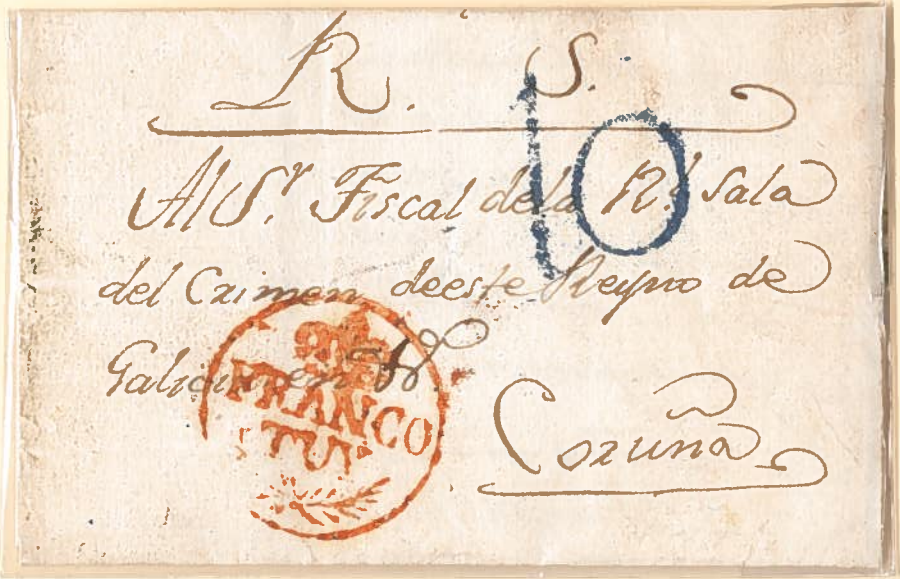 R. S.
10
Al S.r Fiscal de la R.l Sala
del Crimen de este Reyno de
Galicia en
FRANCO
TUY
Coruña